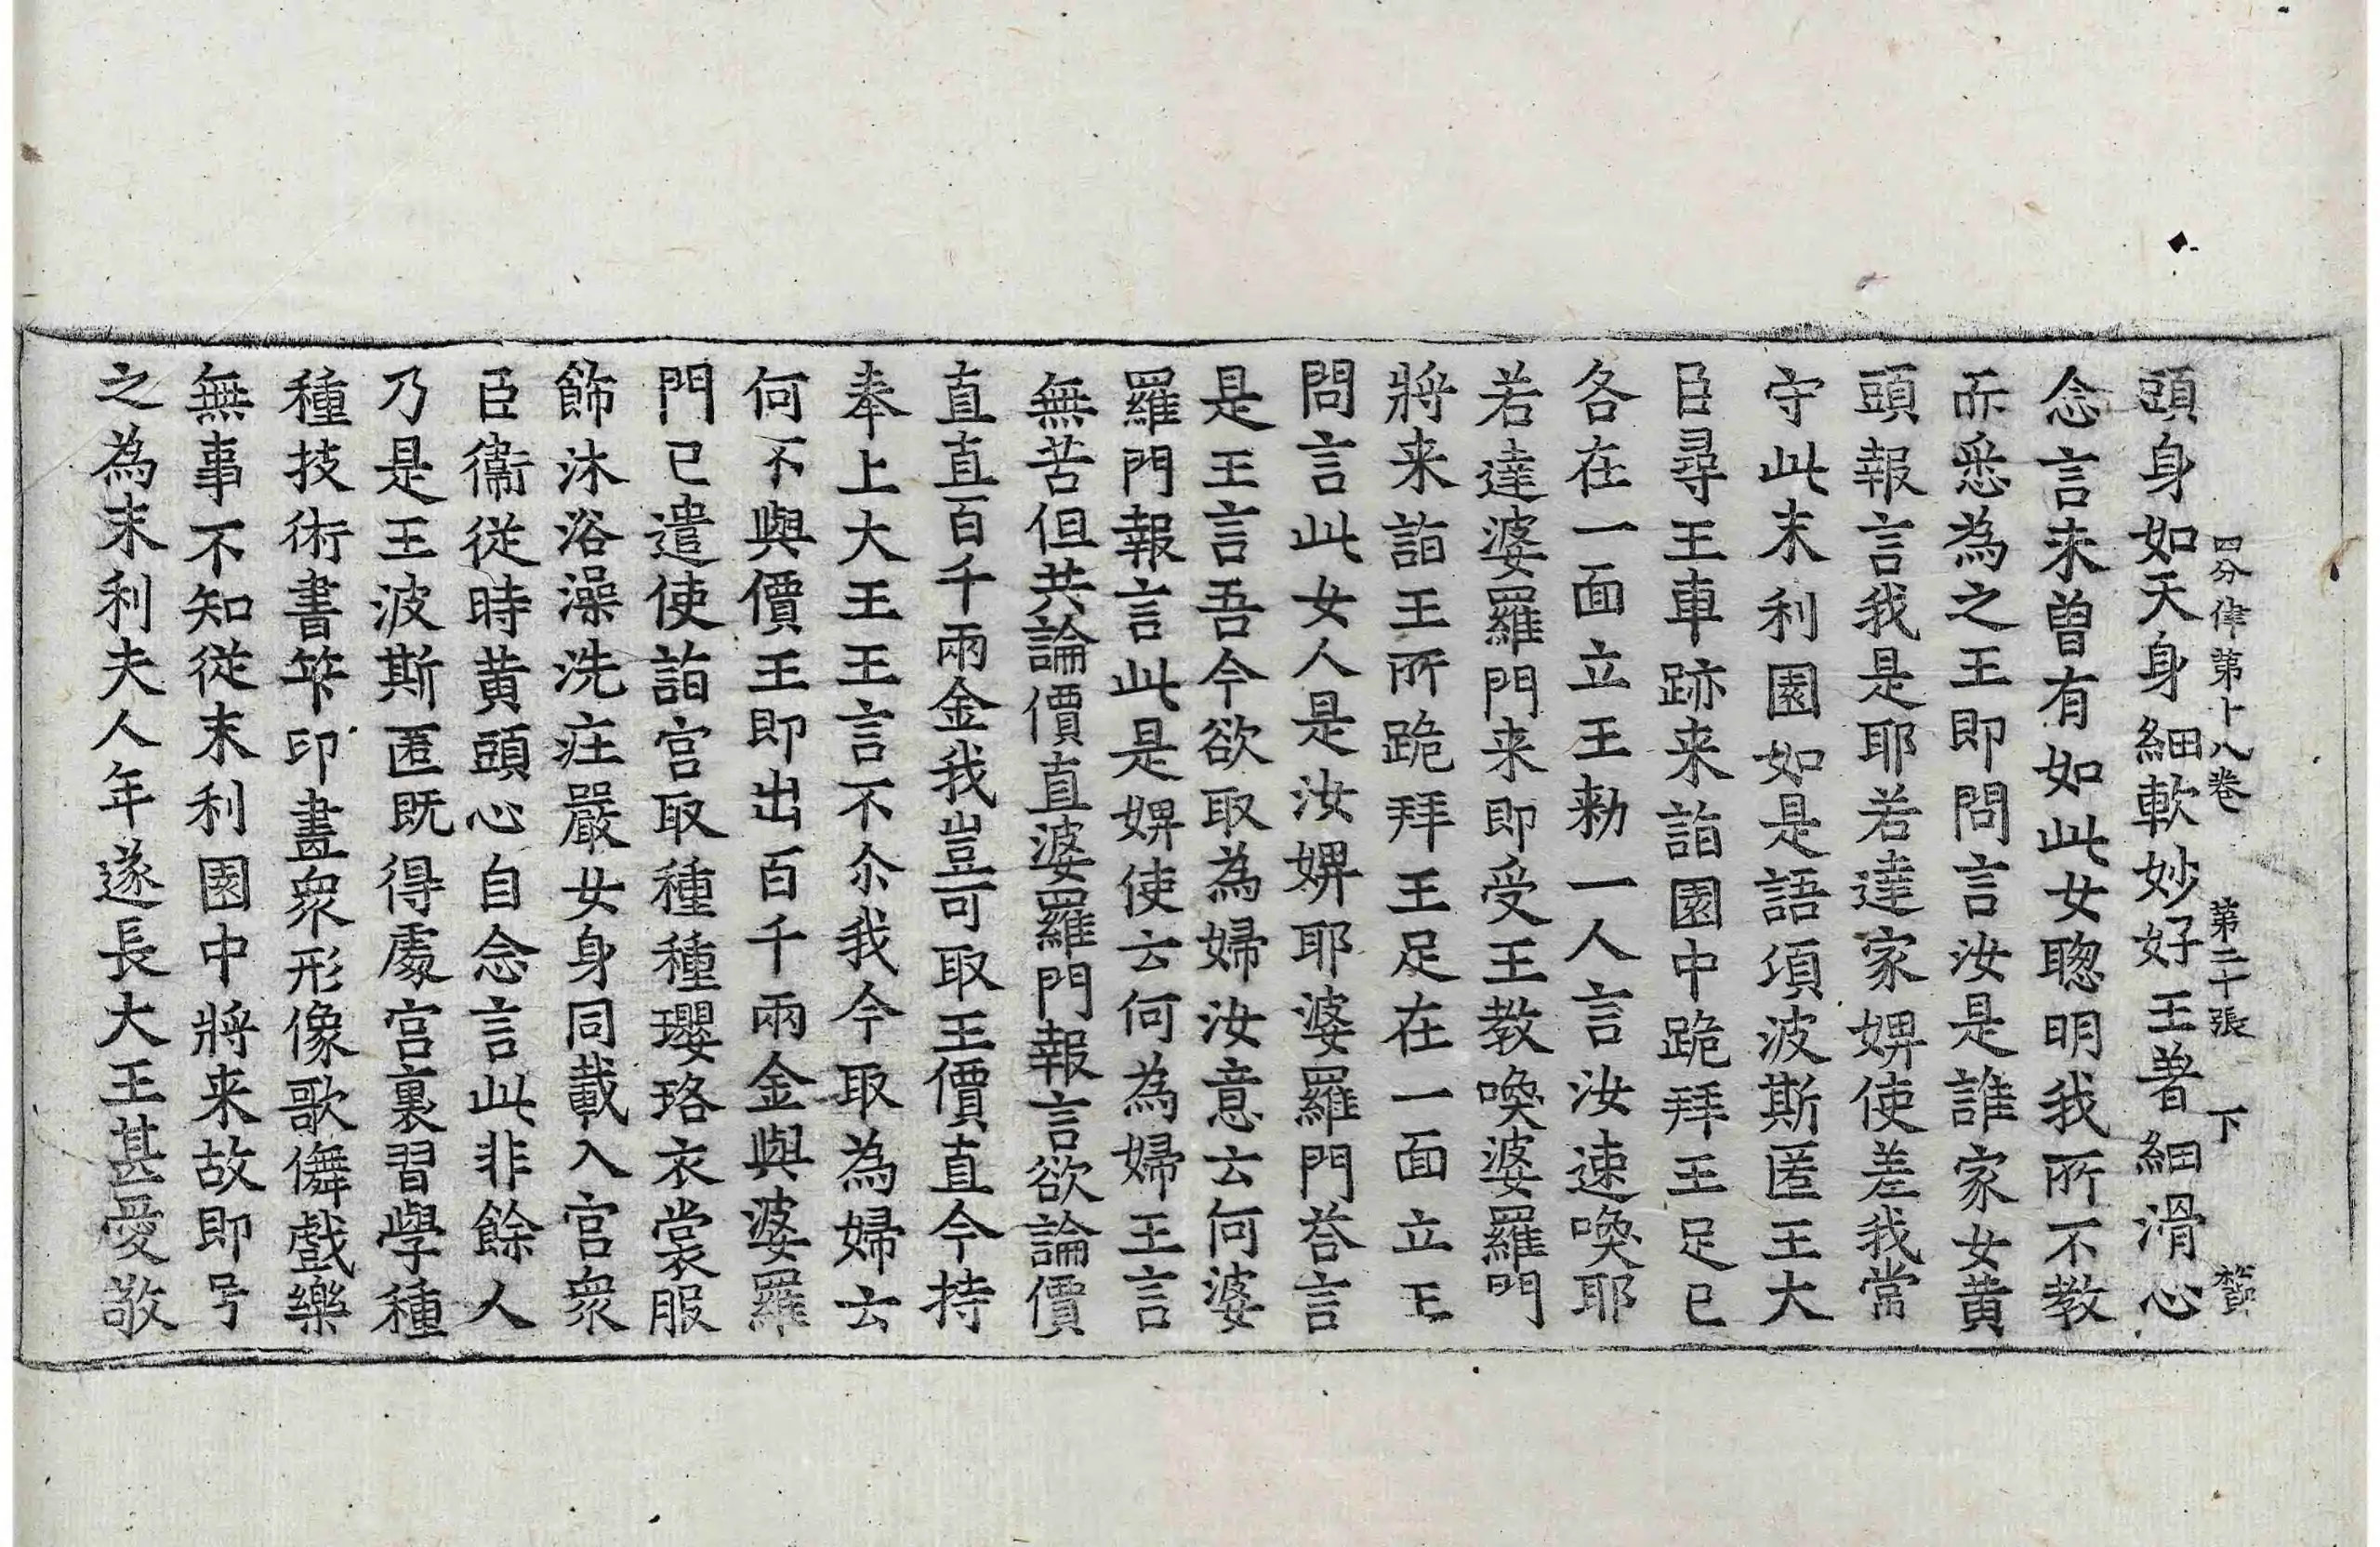 四分律第十八卷 第二十張 下
頭身如天身細軟妙好王著細滑心
念言未曾有如此女聰明我所不教
而悉為之王即問言汝是誰家女黃
頭報言我是耶若達家婢使差我當
守此末利園如是語頃波斯匿王大
臣尋王車跡来詣園中跪拜王足已
各在一面立王勑一人言汝速喚耶
若達婆羅門来即受王教喚婆羅門
將来詣王所跪拜王足在一面立王
問言此女人是汝婢耶婆羅門荅言
是王言吾今欲取為婦汝意云何婆
羅門報言此是婢使云何為婦王言
無苦但共論價直婆羅門報言欲論價
直直百千兩金我豈可取王價直今持
奉上大王王言不尒我今取為婦云
何不與價王即出百千兩金與婆羅
門已遣使詣宮取種種瓔珞衣裳服
飾沐浴澡洗莊嚴女身同載入宮衆
臣衞從時黃頭心自念言此非餘人
乃是王波斯匿既得處宮裏習學種
種技術書筭印畫衆形像歌儛戲樂
無事不知從末利園中將来故即号
之為末利夫人年遂長大王甚愛敬